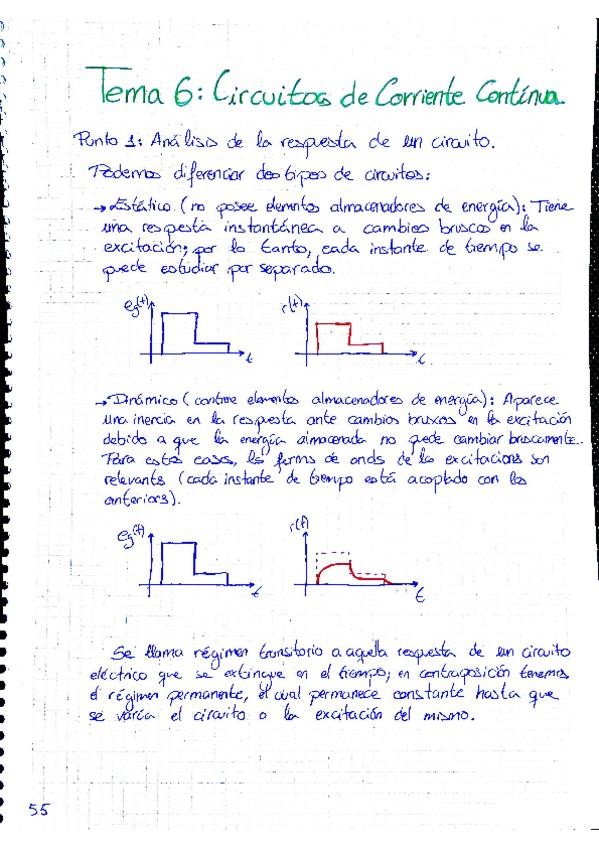 Tema 6: Circuitos de Corriente Contínua.
Punto 1: Análisis de la respuesta de un circuito.
Podemos diferenciar dos tipos de circuitos:
→ Estático (no posee elementos almacenadores de energía): Tiene
una respuesta instantánea a cambios bruscos en la
excitación; por lo tanto, cada instante de tiempo se
puede estudiar por separado.
eg(t) r(t)
t t
→ Dinámico (contiene elementos almacenadores de energía): Aparece
una inercia en la respuesta ante cambios bruscos en la excitación
debido a que la energía almacenada no puede cambiar bruscamente.
Para estos casos, la forma de onda de la excitación son
relevants (cada instante de tiempo está acoplado con los
anteriors).
eg(t) r(t)
t t
Se llama régimen transitorio a aquella respuesta de un circuito
eléctrico que se extingue en el tiempo; en contraposición tenemos
el régimen permanente, el cual permanece constante hasta que
se varía el circuito o la excitación del mismo.
55